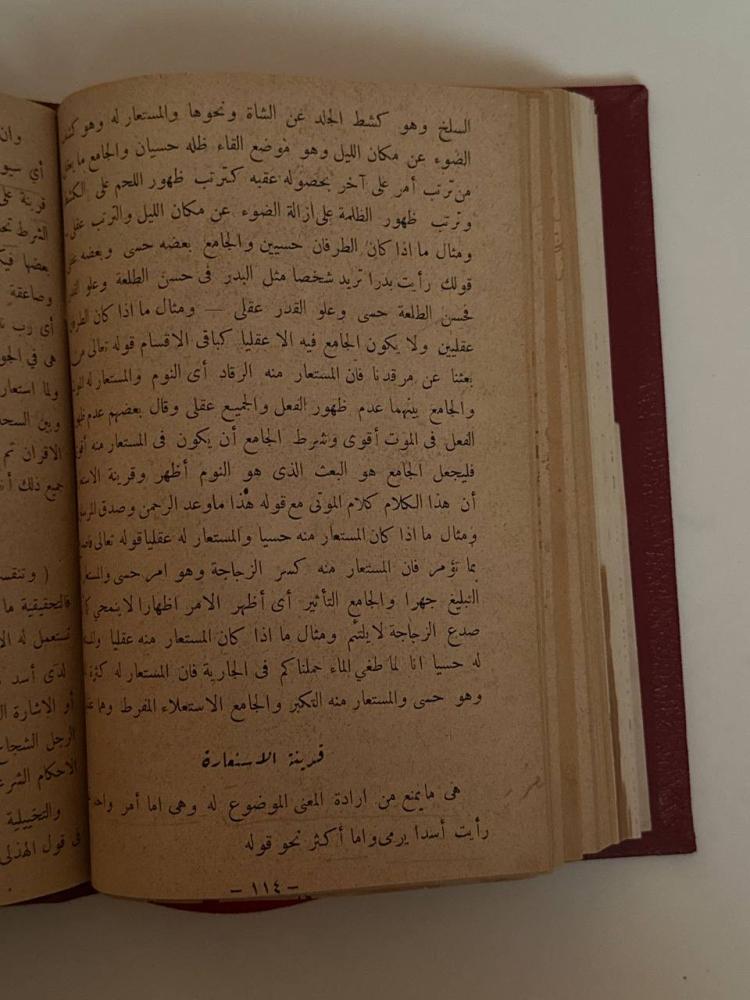 السلخ وهو كشط الجلد عن الشاة ونحوها والمستعار له وهو كشف
الضوء عن مكان الليل وهو موضع القاء ظله حسيان والجامع ما يعقل
من ترتب أمر على آخر بحصوله عقبه كترتب ظهور اللحم على الكشط
وترتب ظهور الظلمة على ازالة الضوء عن مكان الليل والترتب عقلى
ومثال ما اذا كان الطرفان حسيين والجامع بعضه حسى وبعضه عقلى
قولك رأيت بدرا تريد شخصا مثل البدر فى حسن الطلعة وعلو القدر
فحسن الطلعة حسى وعلو القدر عقلى — ومثال ما اذا كان الطرفان
عقليين ولا يكون الجامع فيه الا عقليا كباقى الاقسام قوله تعالى من
بعثنا عن مرقدنا فان المستعار منه الرقاد أى النوم والمستعار له الموت
والجامع بينهما عدم ظهور الفعل والجميع عقلى وقال بعضهم عدم ظهور
الفعل فى الموت أقوى وشرط الجامع أن يكون فى المستعار منه أقوى
فليجعل الجامع هو البعث الذى هو النوم أظهر وقرينة
أن هذا الكلام كلام الموتى مع قوله هذا ما وعد الرحمن وصدق المرسلون
ومثال ما اذا كان المستعار منه حسيا والمستعار له عقليا قوله تعالى فاصدع
بما تؤمر فان المستعار منه كسر الزجاجة وهو امر حسى والمستعار
التبليغ جهرا والجامع التأثير أى أظهر الامر اظهارا لا ينمحى كما
صدع الزجاجة لا يلتئم ومثال ما اذا كان المستعار منه عقليا
له حسيا انا لما طغي الماء حملناكم فى الجارية فان المستعار له كثرة
وهو حسى والمستعار منه التكبر والجامع الاستعلاء المفرط وهما
قرينة الاستعارة
هى ما يمنع من ارادة المعنى الموضوع له وهى اما أمر واحد
رأيت أسدا يرمى واما أكثر نحو قوله
— ١١٤ —